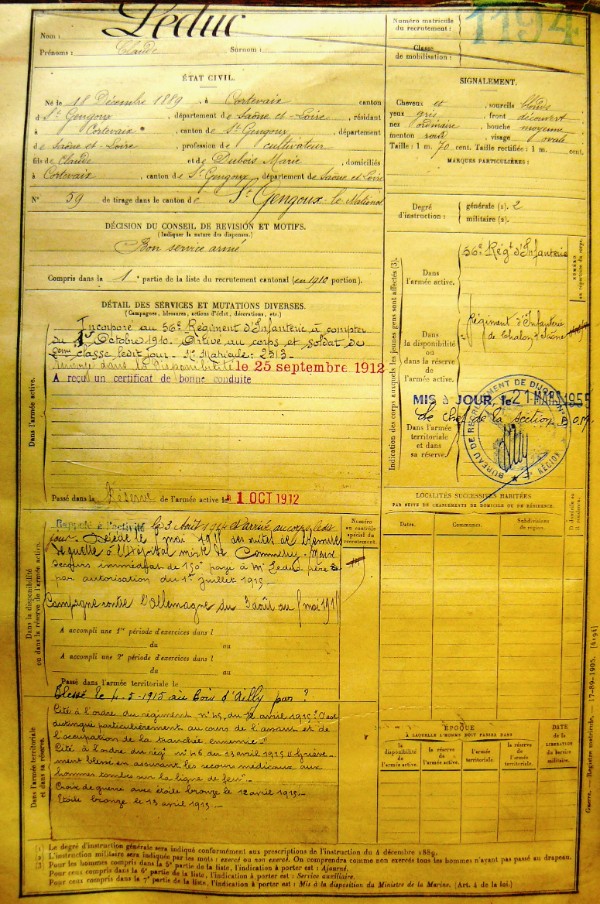 Nom : Leduc
Prénoms : Claude Surnom :
Numéro matricule
du recrutement :
1194
Classe
de mobilisation :
ÉTAT CIVIL.
Né le 18 Décembre 1889, à Cortevaix canton
d St Gengoux, département de Saône et Loire, résidant
à Cortevaix, canton de St Gengoux, département
de Saône et Loire profession de cultivateur
fils de Claude et de Dubois Marie, domiciliés
à Cortevaix, canton de St Gengoux, département de Saône et Loire
N° 59 de tirage dans le canton de St Gengoux le National
SIGNALEMENT.
Cheveux et sourcils blonds
yeux gris front découvert
nez ordinaire bouche moyenne
menton rond visage
Taille : 1 m. 70 cent. Taille rectifiée : 1 m. cent.
MARQUES PARTICULIÈRES :
DÉCISION DU CONSEIL DE REVISION ET MOTIFS.
(Indiquer la nature des dispenses.)
Bon service armé
Compris dans la 1e partie de la liste du recrutement cantonal (en 1910 portion).
Degré
d'instruction :
générale (1). 2
militaire (2).
DÉTAIL DES SERVICES ET MUTATIONS DIVERSES.
(Campagnes, blessures, actions d'éclat, décorations, etc.)
Dans l'armée active.
Incorporé au 56e Régiment d'Infanterie à compter
du 1 Octobre 1910. Arrivé au corps et soldat de
2ème classe ledit jour. No Matricule: 2313
le 25 septembre 1912
A reçu un certificat de bonne conduite
Passé dans la Réserve de l'armée active le 1 OCT 1912
Indication des corps auxquels les jeunes gens sont affectés (3).
Dans
l'armée active.
56e Régt d'Infanterie
Dans
la disponibilité
ou dans la réserve
de l'armée active.
Régiment d'Infanterie
de Chalon s/ Saône
MIS à JOUR, le 21 MARS 1955
Le chef de la section
BUREAU DE RECRUTEMENT DE DIJON
Dans l'armée
territoriale et dans
sa réserve.
Dans la disponibilité
ou dans la réserve de l'armée active.
Rappelé à l'activité le 3 Août 1914 arrivé au corps ledit
jour. Décédé le 7 mai 1915 des suites de blessures
de guerre à l'hôpital mixte de Commercy Meuse
Secours immédiat de 150f payé à Mr Leduc père
par autorisation du 1er Juillet 1915.
Campagne contre l'Allemagne du 3 août au 7 mai 1915
A accompli une 1re période d'exercices dans l
du au
A accompli une 2e période d'exercices dans l
du au
Passé dans l'armée territoriale le
Numéro
au contrôle
spécial du
recrutement.
LOCALITÉS SUCCESSIVES HABITÉES
PAR SUITE DE CHANGEMENTS DE DOMICILE OU DE RÉSIDENCE.
Dates.
Communes.
Subdivisions
de région.
D domicile
ou R résidence.
Dans l'armée territoriale
et dans sa réserve.
Blessé le 4-5-1915 au bois d'Ailly par ?
Cité à l'ordre du régiment no 45, du 12 avril 1915: S'est
distingué particulièrement au cours de l'assaut et de
l'occupation de la tranchée ennemie
Cité à l'ordre du régt no 46 du 15 avril 1915
blessé en assurant les secours médicaux aux
hommes tombés sur la ligne de feu
Croix de guerre avec étoile bronze le 12 avril 1915
Étoile bronze le 15 avril 1915
ÉPOQUE
À LAQUELLE L'HOMME DOIT PASSER DANS
la
disponibilité
de
l'armée active.
la réserve
de
l'armée active.
l'armée
territoriale.
la réserve
de l'armée
territoriale.
DATE
de la
LIBÉRATION
du Service
militaire.
Guerre. — Registre matricule. — 17-89-1905. [4194]
(1) Le degré d'instruction générale sera indiqué conformément aux prescriptions de l'instruction du 4 décembre 1889.
(2) L'instruction militaire sera indiquée par les mots : exercé ou non exercé. On comprendra comme non exercés tous les hommes n'ayant pas passé au drapeau.
(3) Pour les hommes compris dans la 5e partie de la liste, l'indication à porter est : Ajourné.
Pour ceux compris dans la 6e partie de la liste, l'indication à porter est : Service auxiliaire.
Pour ceux compris dans la 7e partie de la liste, l'indication à porter est : Mis à la disposition du Ministre de la Marine. (Art. 4 de la loi.)